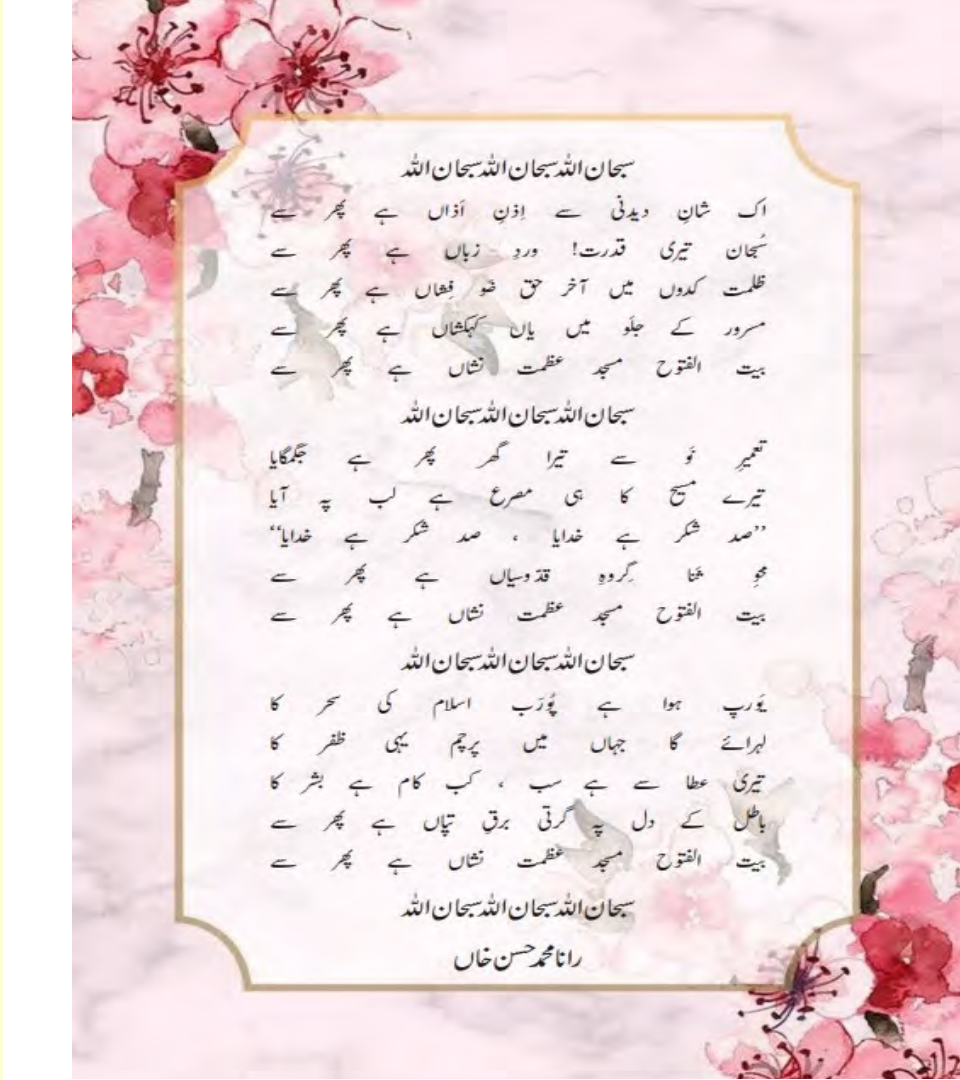 سبحان اللہ سبحان اللہ سبحان اللہ
اک شانِ دیدنی سے اِذنِ اَذاں ہے پھر سے
سُبحان تیری قدرت! وردِ زباں ہے پھر سے
ظلمت کدوں میں آخر حق ضَو فِشاں ہے پھر سے
مسرور کے جلَو میں یاں کہکشاں ہے پھر سے
بیت الفتوح مسجد عظمت نشاں ہے پھر سے
سبحان اللہ سبحان اللہ سبحان اللہ
تعمیرِ نَو سے تیرا گھر پھر ہے جگمگایا
تیرے مسیح کا ہی مصرع ہے لب پہ آیا
’’صد شکر ہے خدایا ، صد شکر ہے خدایا‘‘
محوِ ثنا گِروہِ قدّوسیاں ہے پھر سے
بیت الفتوح مسجد عظمت نشاں ہے پھر سے
سبحان اللہ سبحان اللہ سبحان اللہ
یَورپ ہوا ہے پُورَب اسلام کی سحر کا
لہرائے گا جہاں میں پرچم یہی ظفر کا
تیری عطا سے ہے سب ، کب کام ہے بشر کا
باطل کے دل پہ گرتی برقِ تپاں ہے پھر سے
بیت الفتوح مسجد عظمت نشاں ہے پھر سے
سبحان اللہ سبحان اللہ سبحان اللہ
رانا محمد حسن خاں